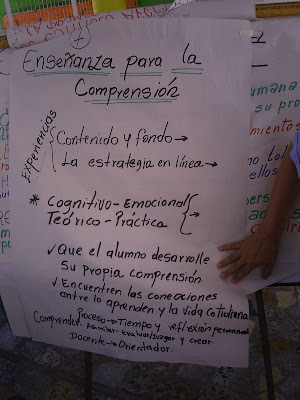 Enseñanza para la
Comprensión
Experiencias
Contenido y fondo→
La estrategia en línea→
* Cognitivo-Emocional
Teórico-Práctica
✓ Que el alumno desarrolle
su propia comprensión
✓ Encuentren las conecciones
entre lo aprenden y la vida cotidiana
Proceso→Tiempo y reflexión permanente
Comprender
Asimilar-Evaluar/Juzgar y crear.
Docente→Orientador.
umana
su pro
mientos
no tol
ellos